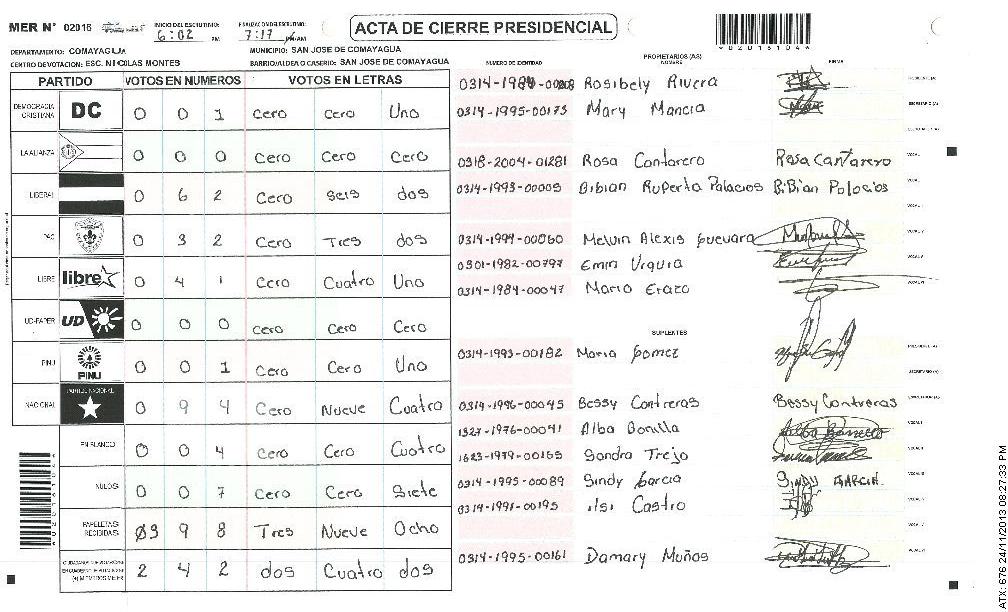 MER N° 02016 INICIO DEL ESCRUTINIO: 6:02 PM FINALIZACION DEL ESCRUTINIO: 7:17 PM/AM ACTA DE CIERRE PRESIDENCIAL
DEPARTAMENTO: COMAYAGUA MUNICIPIO: SAN JOSE DE COMAYAGUA
CENTRO DE VOTACION: ESC. NICOLAS MONTES BARRIO/ALDEA O CASERIO: SAN JOSE DE COMAYAGUA
NUMERO DE IDENTIDAD PROPIETARIOS (AS) NOMBRE FIRMA
PARTIDO VOTOS EN NUMEROS VOTOS EN LETRAS
DEMOCRACIA CRISTIANA DC 0 0 1 Cero Cero Uno
LA ALIANZA 0 0 0 Cero Cero Cero
LIBERAL 0 6 2 Cero Seis dos
PAC 0 3 2 Cero Tres dos
LIBRE libre 0 4 1 Cero Cuatro Uno
UD-FAPER UD 0 0 0 Cero Cero Cero
PINU PINU 0 0 1 Cero Cero Uno
NACIONAL PARTIDO NACIONAL 0 9 4 Cero Nueve Cuatro
EN BLANCO 0 0 4 Cero Cero Cuatro
NULOS 0 0 7 Cero Cero Siete
PAPELETAS RECIBIDAS 3 9 8 Tres Nueve Ocho
2 4 2 dos Cuatro dos
Rosibely Rivera
0314-1995-00173 Mary Mancia
0318-2004-01281 Rosa Cantarero Rosa Cantarero
0314-1993-00005 Bibian Ruperta Palacios BiBian Palacios
0314-1994-00060 Melvin Alexis Guevara
0301-1982-00797 Emin Urquia
0314-1984-00047 Mario Erazo
SUPLENTES
0314-1993-00182 Maria Gomez
0314-1996-00045 Bessy Contreras Bessy Contreras
1327-1976-00041 Alba Bonilla
1623-1979-00165 Sandra Trejo
0314-1995-00089 Sindy Garcia SINDY GARCIA
0314-1991-00195 ilsi Castro
0314-1995-00161 Damary Muños
ATX: 676 24/11/2013 08:27:33 PM